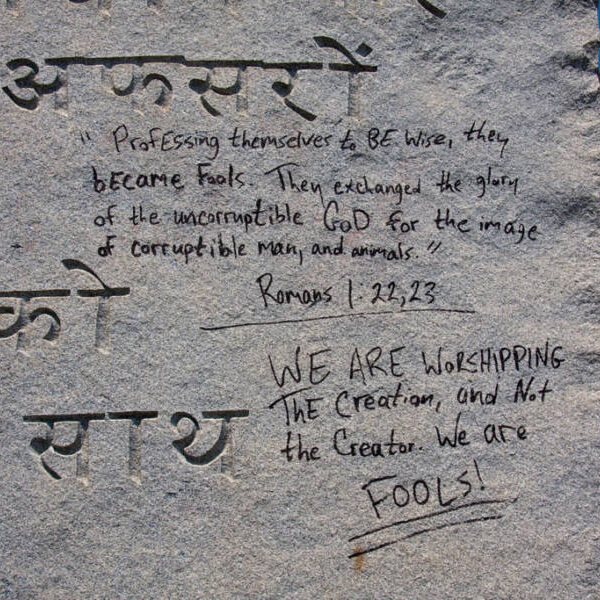 अफसरों
" Professing themselves to BE Wise, they
bECame Fools. They exchanged the glory
of the uncorruptible GoD for the image
of corruptible man, and animals. "
को
Romans 1:22,23
WE ARE WoRSHIPPING
ThE Creation, and Not
the Creator. We are
साथ
FOOLs!